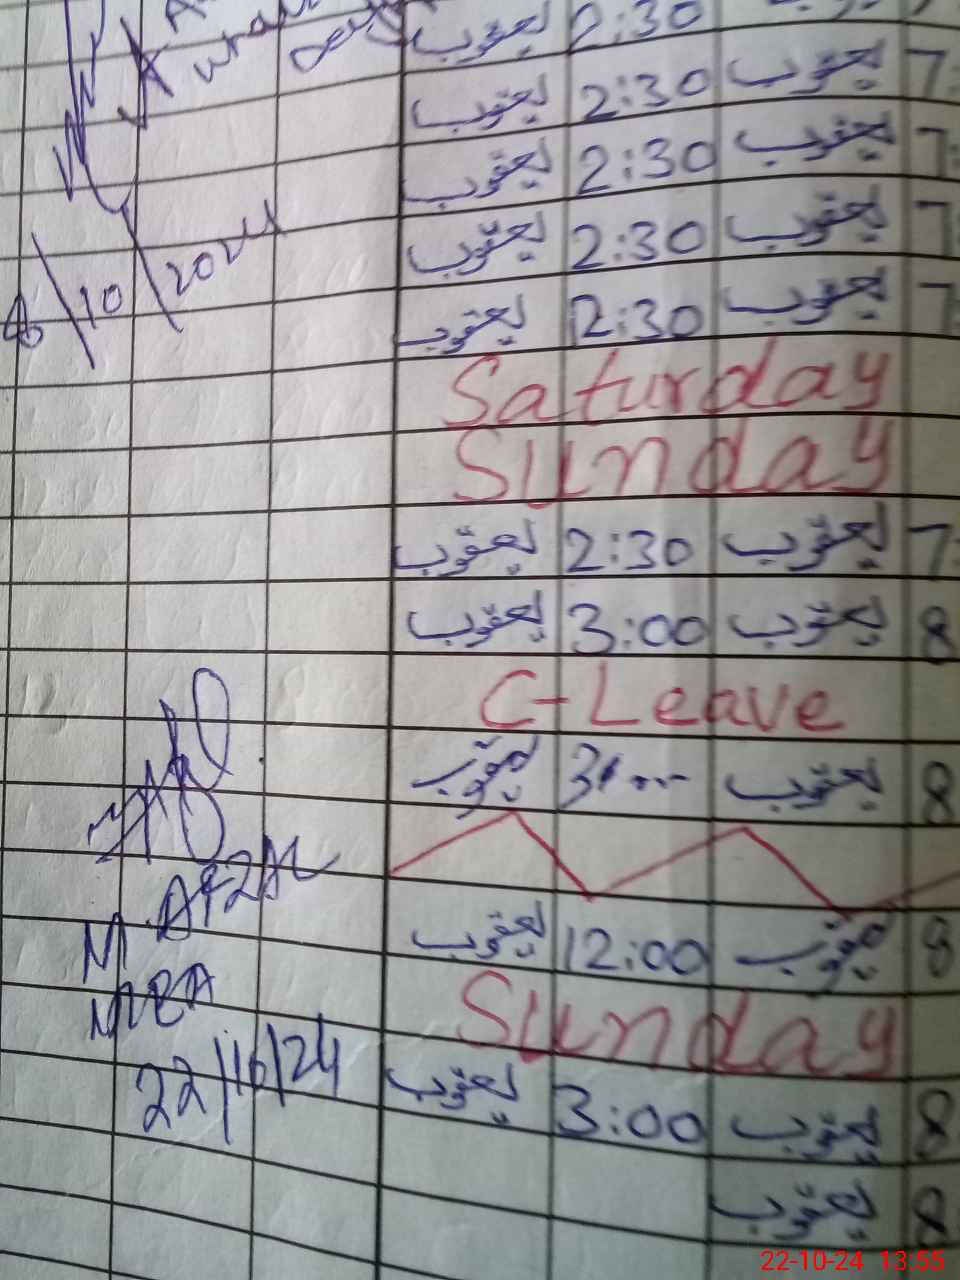 یعقوب 2:30
یعقوب 2:30 یعقوب 7:
یعقوب 2:30 یعقوب 7:
یعقوب 2:30 یعقوب 7
یعقوب 2:30 یعقوب 7
/10/2024
Saturday
Sunday
یعقوب 2:30 یعقوب 7:
یعقوب 3:00 یعقوب 8
C-Leave
یعقوب 3:00 یعقوب 8
یعقوب 12:00 یعقوب 8
Sunday
M AFZAL
MEA
22/10/24
یعقوب 3:00 یعقوب 8
یعقوب 8
22-10-24 13:55